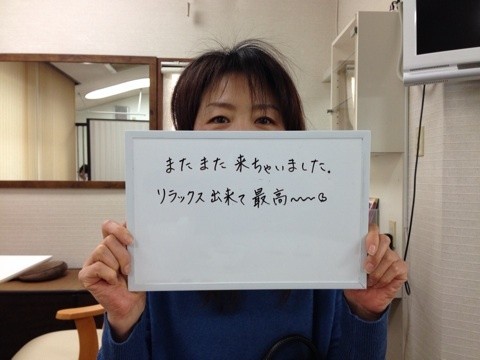 またまた来ちゃいました。
リラックス出来て最高〜〜